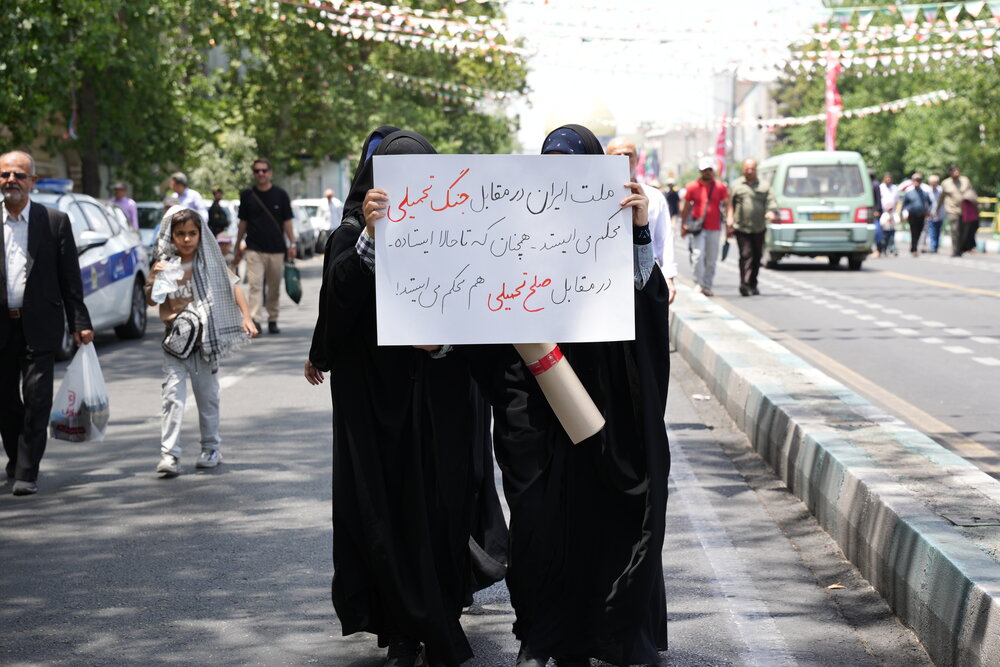 ملت ایران در مقابل جنگ تحمیلی
محکم می‌ایستد - همچنان که تا حالا ایستاده -
در مقابل صلح تحمیلی هم محکم می‌ایستد!